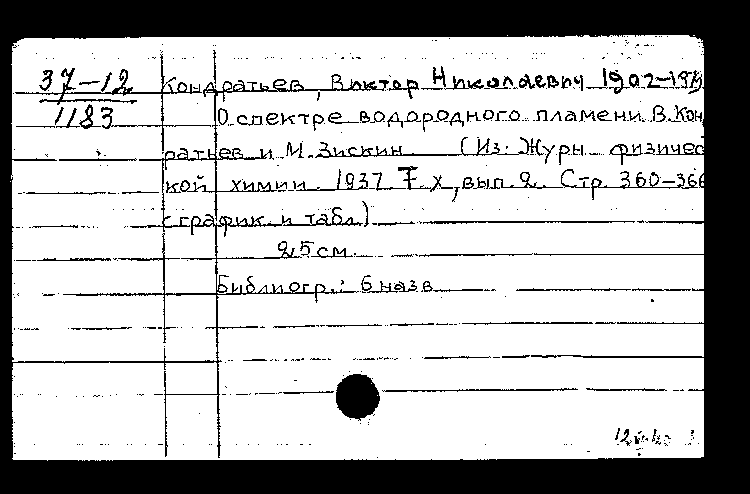 37-12
1183
Кондратьев, Виктор Николаевич 1902-19
О спектре водородного пламени В. Кон
ратьев и М. Зискин (Из: Журн. физичес
кой химии. 1937. Т X, вып. 2. Стр. 360-366
с график. и табл.)
25 см.
Библиогр.: 6 назв